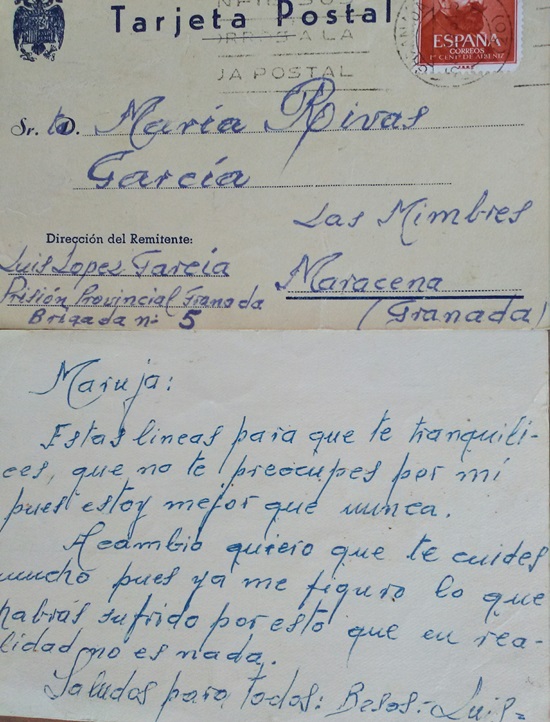 Tarjeta Postal
A LA
JA POSTAL
ESPAÑA
CORREOS
Sr. D. María Rivas
García
Las Mimbres
Dirección del Remitente:
Luis Lopez García
Maracena
Prisión Provincial Granada
(Granada)
Brigada nº 5
Maruja:
Estas lineas para que te tranquili-
ces, que no te preocupes por mí
pues estoy mejor que nunca.
A cambio quiero que te cuides
mucho pues ya me figuro lo que
habrás sufrido por esto que en rea-
lidad no es nada.
Saludos para todos: Besos: Luis